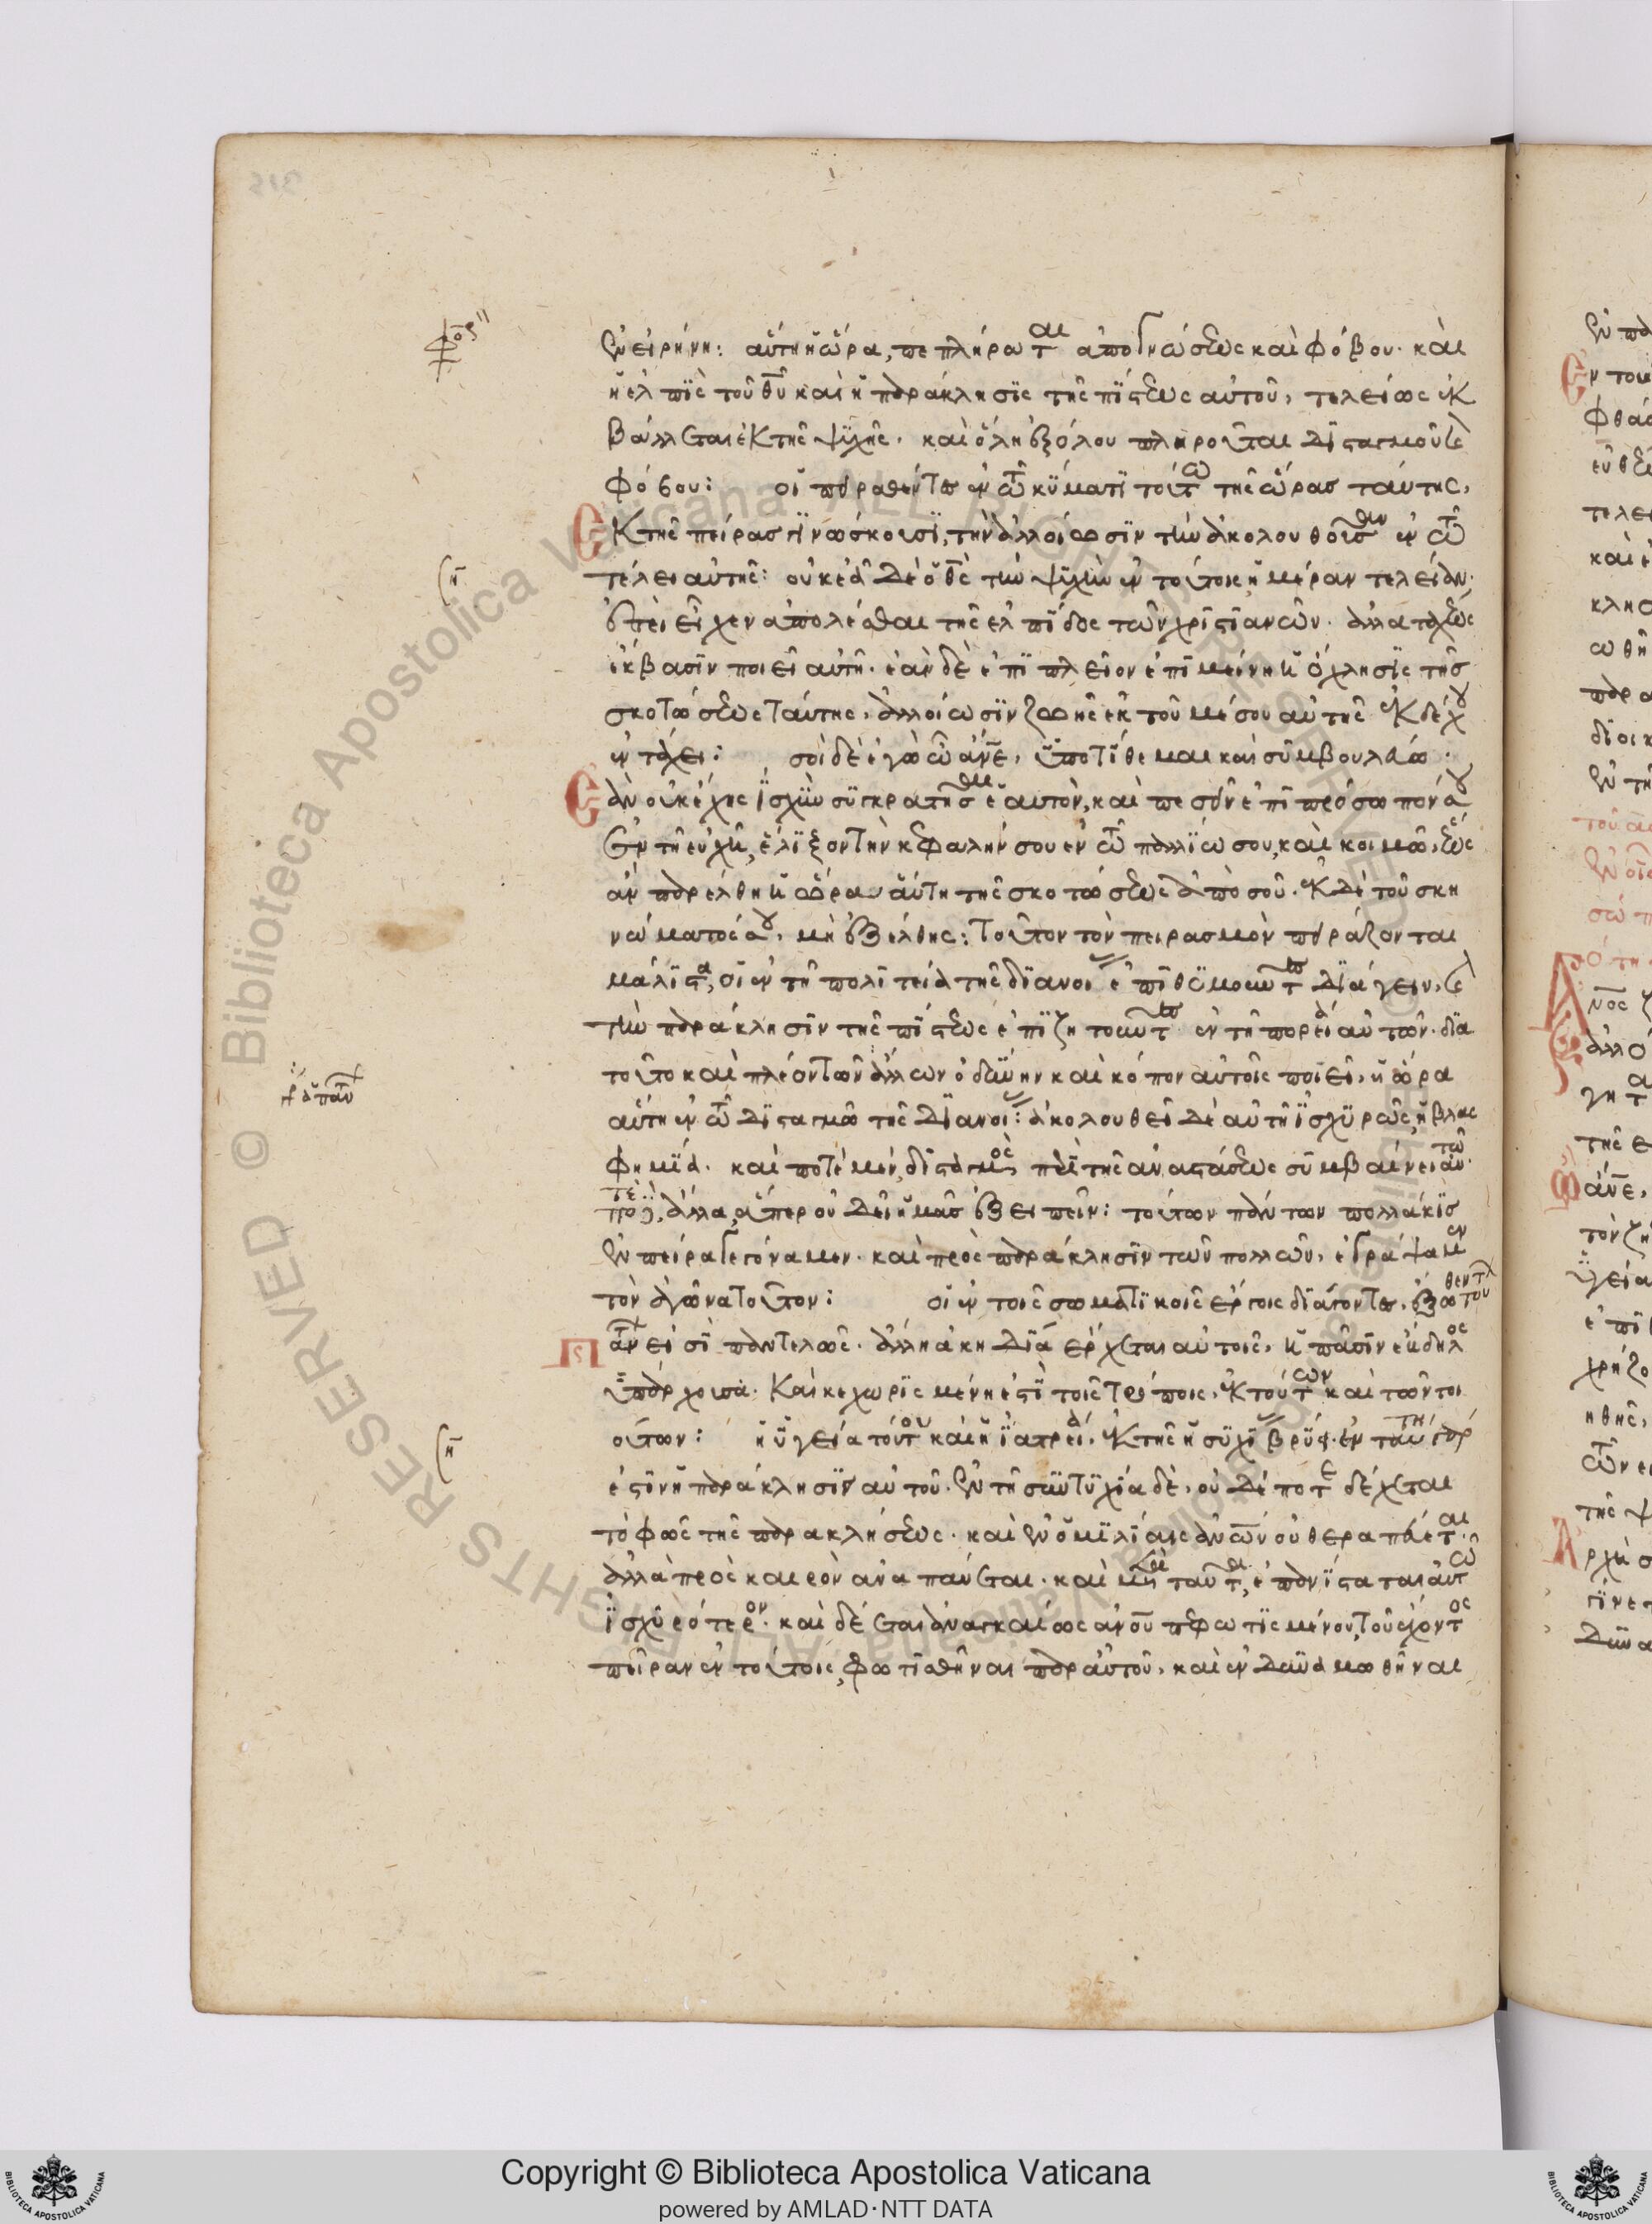 ἐν εἰρήνη: αὕτη ἡ ὥρα, πεπλήρωται ἀπογνώσεως καὶ φόβου. καὶ
ἡ ἐλπὶς τοῦ θυ καὶ ἡ παράκλησις τῆς πίστεως αὐτοῦ, τελείως ἐκ
βάλλεται ἐκ τῆς ψυχῆς. καὶ ὅλη ἐξόλου πληροῦται δισταγμοῦ καὶ
φόβου: οἱ πειραθέντες ἐν τῶ κύματι τούτω τῆς ὥρας ταύτης,
Ἐκ τῆς πείρας γινώσκουσι, τὴν ἀλλοίωσιν τὴν ἀκολουθοῦσαν ἐν τῶ
τέλει αὐτῆς: οὐκ ἐᾶ δὲ ὁ θς τὴν ψυχὴν ἐν τούτοις ἡμέραν τελείαν.
ἐπεὶ εἶχεν ἀπολέσθαι τῆς ἐλπίδος τῶν χριστιανῶν. ἀλλὰ ταχέως
ἔκβασιν ποιεῖ αὐτῆ. ἐὰν δὲ ἐπὶ πλεῖον ἐπιμείνη ἡ ὄχλησις τῆς
σκοτώσεως ταύτης, ἀλλοίωσιν ζωῆς ἐκ τοῦ μέσου αὐτῆς ἐκδέχου
ἐν τάχει: σοὶ δὲ ἐγὼ ὦ ἄνε, ὑποτίθεμαι καὶ συμβουλεύω.
Ἐὰν οὐκ ἔχης ἰσχὺν συγκρατῆσαι ἑαυτὸν, καὶ πεσεῖν ἐπὶ πρόσωπόν σου
ἐν τῆ εὐχῆ, ἕλιξον τὴν κεφαλήν σου ἐν τῶ παλλίω σου, καὶ κοιμῶ, ἕως
ἂν παρέλθη ἡ ὥρα αὕτη τῆς σκοτώσεως ἀπὸ σοῦ. ἐκ δὲ τοῦ σκη
νώματός σου, μὴ ἐξέλθης: τοῦτον τὸν πειρασμὸν πειράζονται
μάλιστα, οἱ ἐν τῆ πολιτεία τῆς διανοίας ἐπιθυμοῦντες διάγειν, καὶ
τὴν παράκλησιν τῆς πίστεως ἐπιζητοῦντες ἐν τῆ πορεία αὐτῶν. διὰ
τοῦτο καὶ πλέον τῶν ἄλλων ὀδύνην καὶ κόπον αὐτοῖς ποιεῖ, ἡ ὥρα
αὕτη ἐν τῶ δισταγμῶ τῆς διανοίας: ἀκολουθεῖ δὲ αὐτῆ ἰσχυρῶς, ἡ βλας
φημία. καὶ ποτὲ μὲν, δισταγμὸς περὶ τῆς ἀναστάσεως συμβαίνει αὐτῶ.
ποτὲ δὲ, ἄλλα, ἅπερ οὐ δεῖ ἡμᾶς ἐξειπεῖν: τούτων πάντων πολλάκις
ἐν πείρα γεγόναμεν. καὶ πρὸς παράκλησιν τῶν πολλῶν, ἐγράψαμεν
τὸν ἀγῶνα τοῦτον: οἱ ἐν τοῖς σωματικοῖς ἔργοις διάγοντες, ἔξωθεν τούτων
εἰσὶ παντελῶς. ἄλλη ἀκηδία ἔρχεται αὐτοῖς, ἡ πᾶσιν εὔδηλος
ὑπάρχουσα. καὶ κεχωρισμένη ἐστὶ τοῖς τρόποις, ἐκ τούτων καὶ τῶν τοι
ούτων: ἡ ὑγεία τούτου καὶ ἡ ἰατρεία, ἐκ τῆς ἡσυχίας βρύει. ἐν ταύτη γάρ
ἐστιν ἡ παράκλησις αὐτοῦ. ἐν τῆ συντυχία δὲ, οὐδέποτε δέχεται
τὸ φῶς τῆς παρακλήσεως. καὶ ἐν ὁμιλίαις ἀνων οὐ θεραπεύεται.
ἀλλὰ πρὸς καιρὸν ἀναπαύεται. καὶ μετὰ ταῦτα, ἐπανίσταται αὐτῶ
ἰσχυρότερον. καὶ δέεται ἀναγκαίως ἀνου πεφωτισμένου, τοῦ ἔχοντος
πεῖραν ἐν τούτοις, φωτισθῆναι παρ' αὐτοῦ, καὶ ἐνδυναμωθῆναι
Copyright © Biblioteca Apostolica Vaticana
powered by AMLAD·NTT DATA
Biblioteca Apostolica Vaticana ALL RIGHTS RESERVED ©